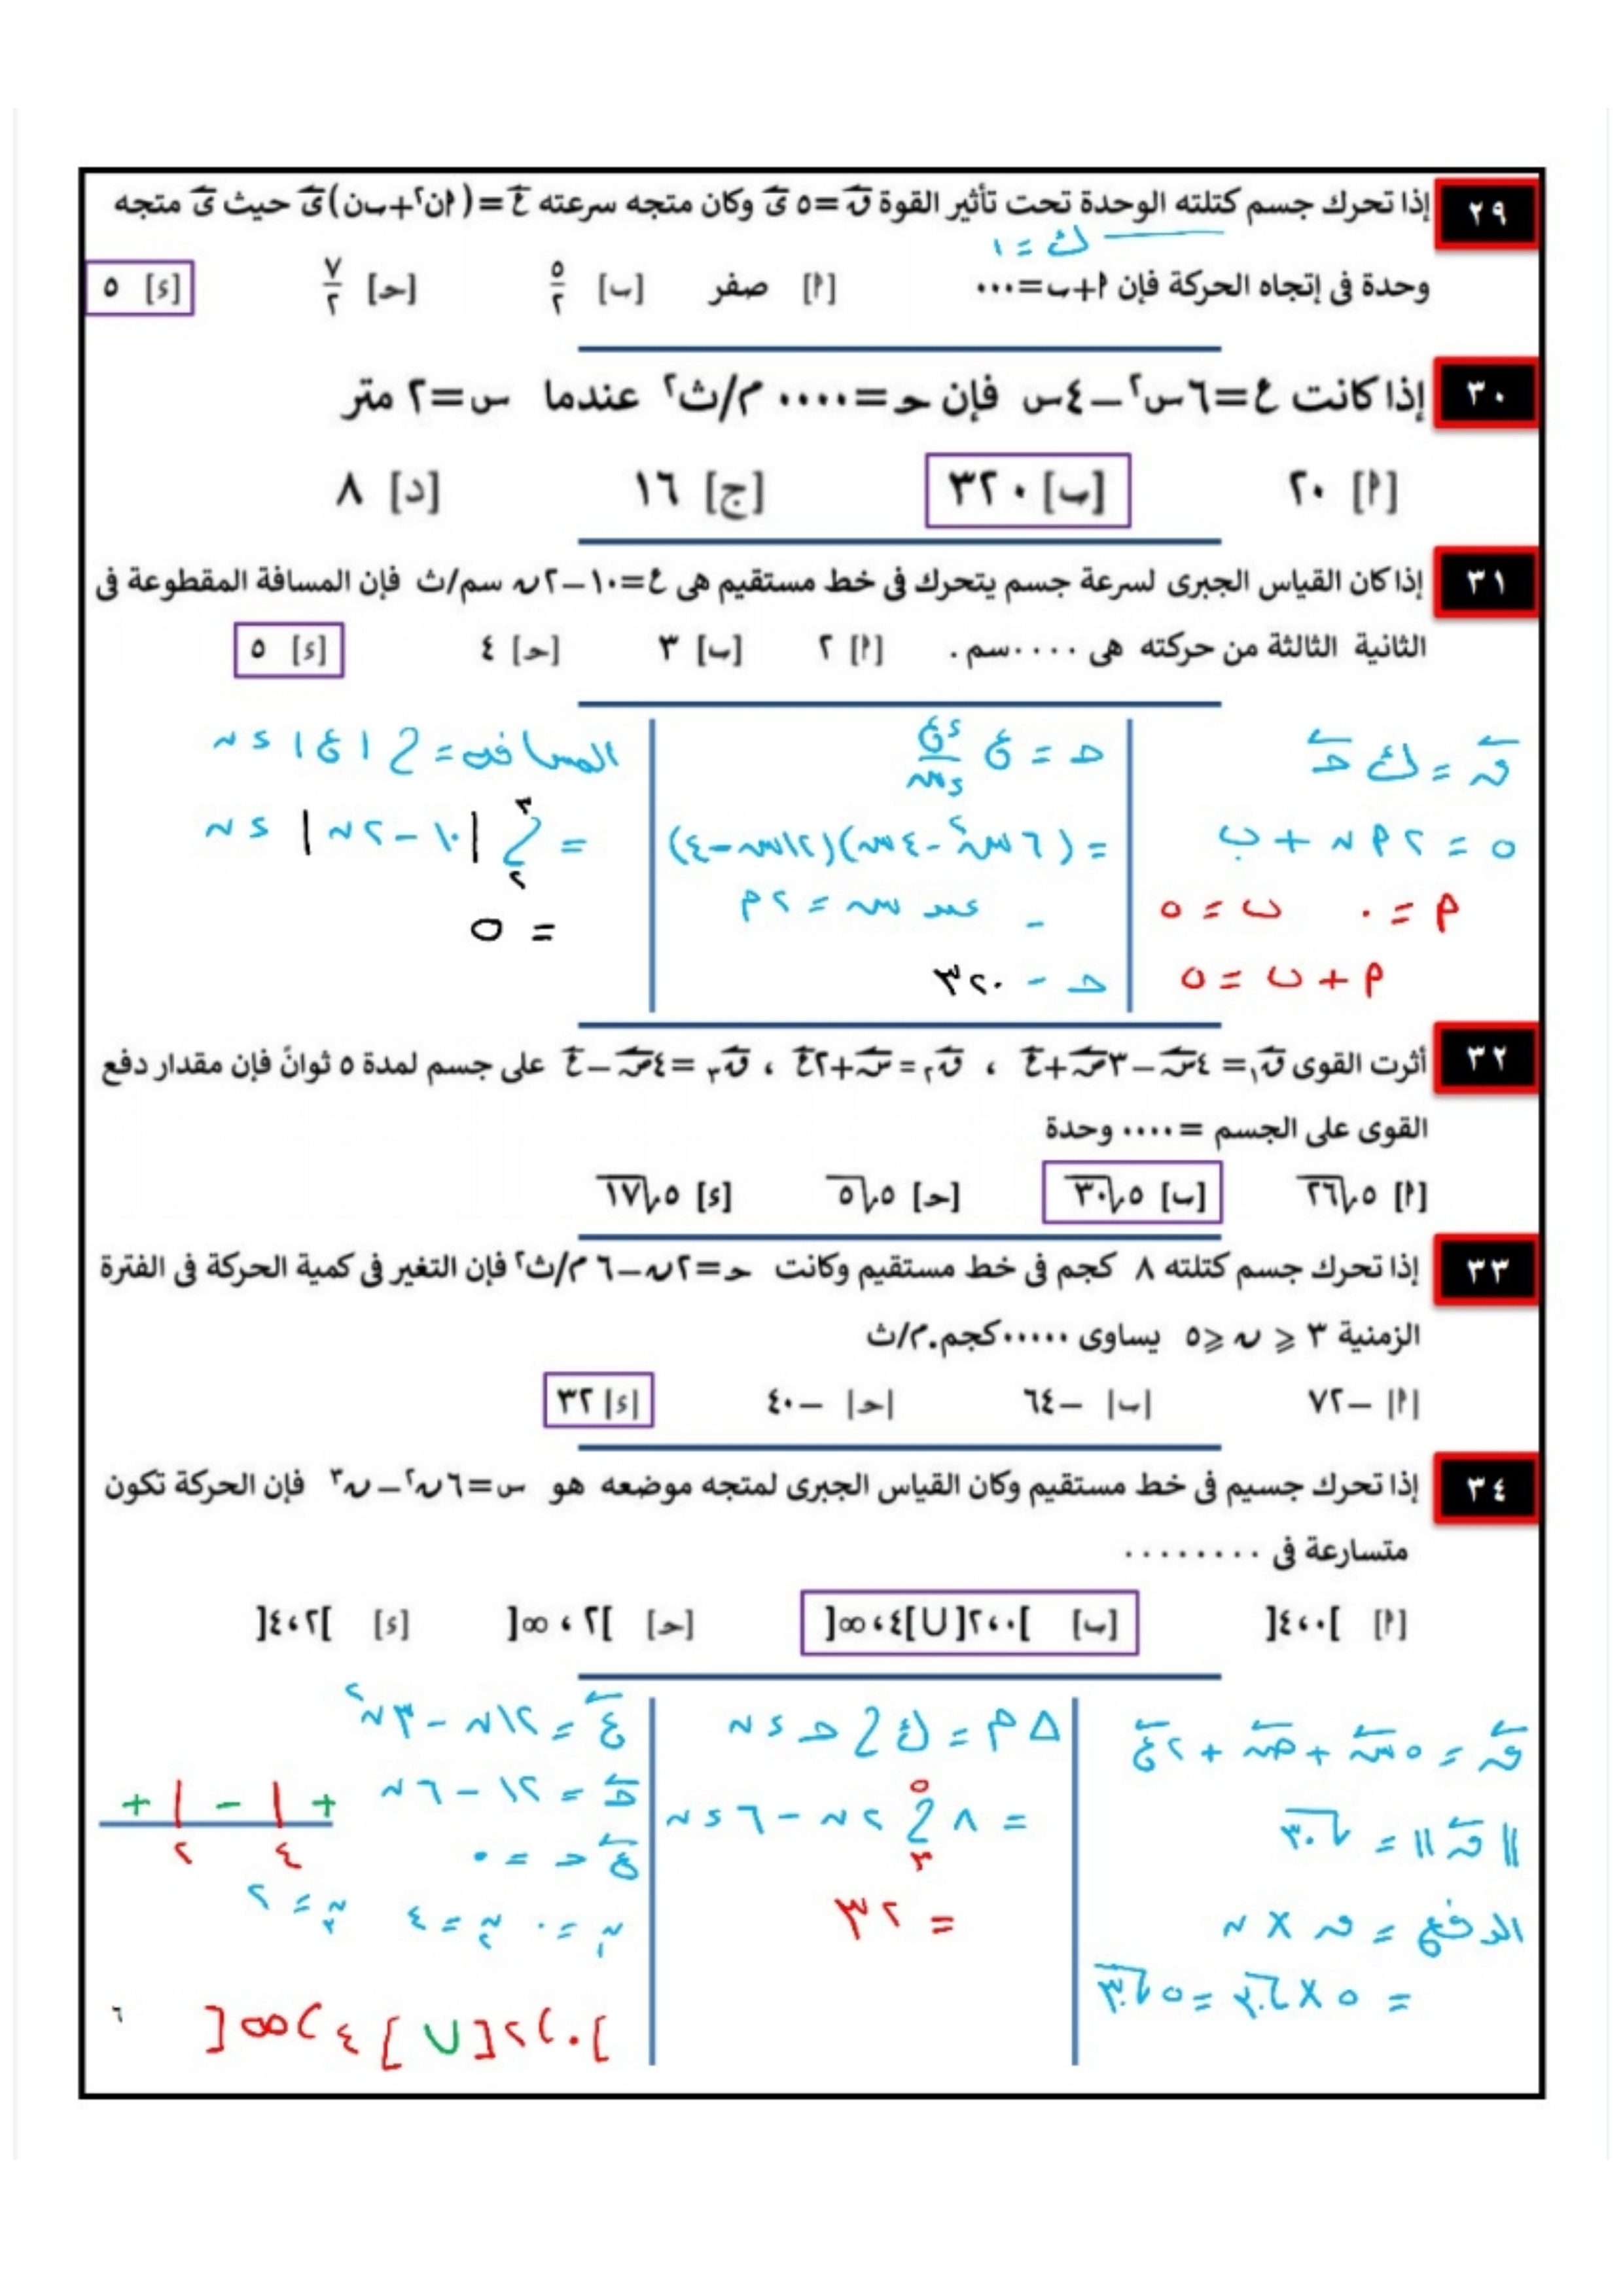 ٢٩ إذا تحرك جسم كتلته الوحدة تحت تأثير القوة ق=٥ ى وكان متجه سرعته ع=(أن٢+بن)ى حيث ى متجه
ك = ١
وحدة فى إتجاه الحركة فإن أ+ب=٠٠٠ [أ] صفر [ب] ٥/٢ [حـ] ٧/٢ [ء] ٥
٣٠ إذا كانت ع=٦س٢–٤س فإن حـ=٠٠٠٠ م/ث٢ عندما س=٢ متر
[أ] ٢٠ [ب] ٣٢٠ [ج] ١٦ [د] ٨
٣١ إذا كان القياس الجبرى لسرعة جسم يتحرك فى خط مستقيم هى ع=١٠–٢ن سم/ث فإن المسافة المقطوعة فى
الثانية الثالثة من حركته هى ٠٠٠٠سم . [أ] ٢ [ب] ٣ [حـ] ٤ [ء] ٥
ق = ك حـ
٥ = ٢ أ ن + ب
أ = ٠ ب = ٥
أ + ب = ٥
حـ = ع ءع/ءس
= (٦س٢ - ٤س)(١٢س - ٤)
- عند س = ٢م
حـ - ٣٢٠
المسافه = ∫ |ع| ء ن
= ∫ ٢ ٣ |١٠ - ٢ن| ء ن
= ٥
٣٢ أثرت القوى ق١= ٤س–٣ص+ع ، ق٢=س+٢ع ، ق٣=٤ص–ع على جسم لمدة ٥ ثوانً فإن مقدار دفع
القوى على الجسم =٠٠٠٠ وحدة
[أ] ٥√٢٦ [ب] ٥√٣٠ [حـ] ٥√٥ [ء] ٥√١٧
٣٣ إذا تحرك جسم كتلته ٨ كجم فى خط مستقيم وكانت حـ=٢ن–٦ م/ث٢ فإن التغير فى كمية الحركة فى الفترة
الزمنية ٣ ⩽ ن ⩽ ٥ يساوى ٠٠٠٠٠كجم.م/ث
[أ] –٧٢ [ب] –٦٤ [حـ] –٤٠ [ء] ٣٢
٣٤ إذا تحرك جسيم فى خط مستقيم وكان القياس الجبرى لمتجه موضعه هو س=٦ن٢–ن٣ فإن الحركة تكون
متسارعة فى ٠٠٠٠٠٠٠٠
[أ] ]٤،٠[ [ب] ]٢،٠[∪]٤،∞[ [حـ] ]٢ ، ∞[ [ء] ]٤،٢[
ق = ٥س + ص + ٢ع
||ق|| = √٣٠
الدفع = ق × ن
= ٥ × √٣٠ = ٥√٣٠
Δ م = ك ∫ حـ ء ن
= ٨ ∫ ٣ ٥ ٢ن - ٦ ء ن
= ٣٢
ع = ١٢ن - ٣ن٢
حـ = ١٢ - ٦ن
ع حـ = ٠
ن١ = ٠ ن٢ = ٤ ن٣ = ٢
+ | - | +
٢ ٤
]٠،٢[ ∪ ]٤،∞[
٦